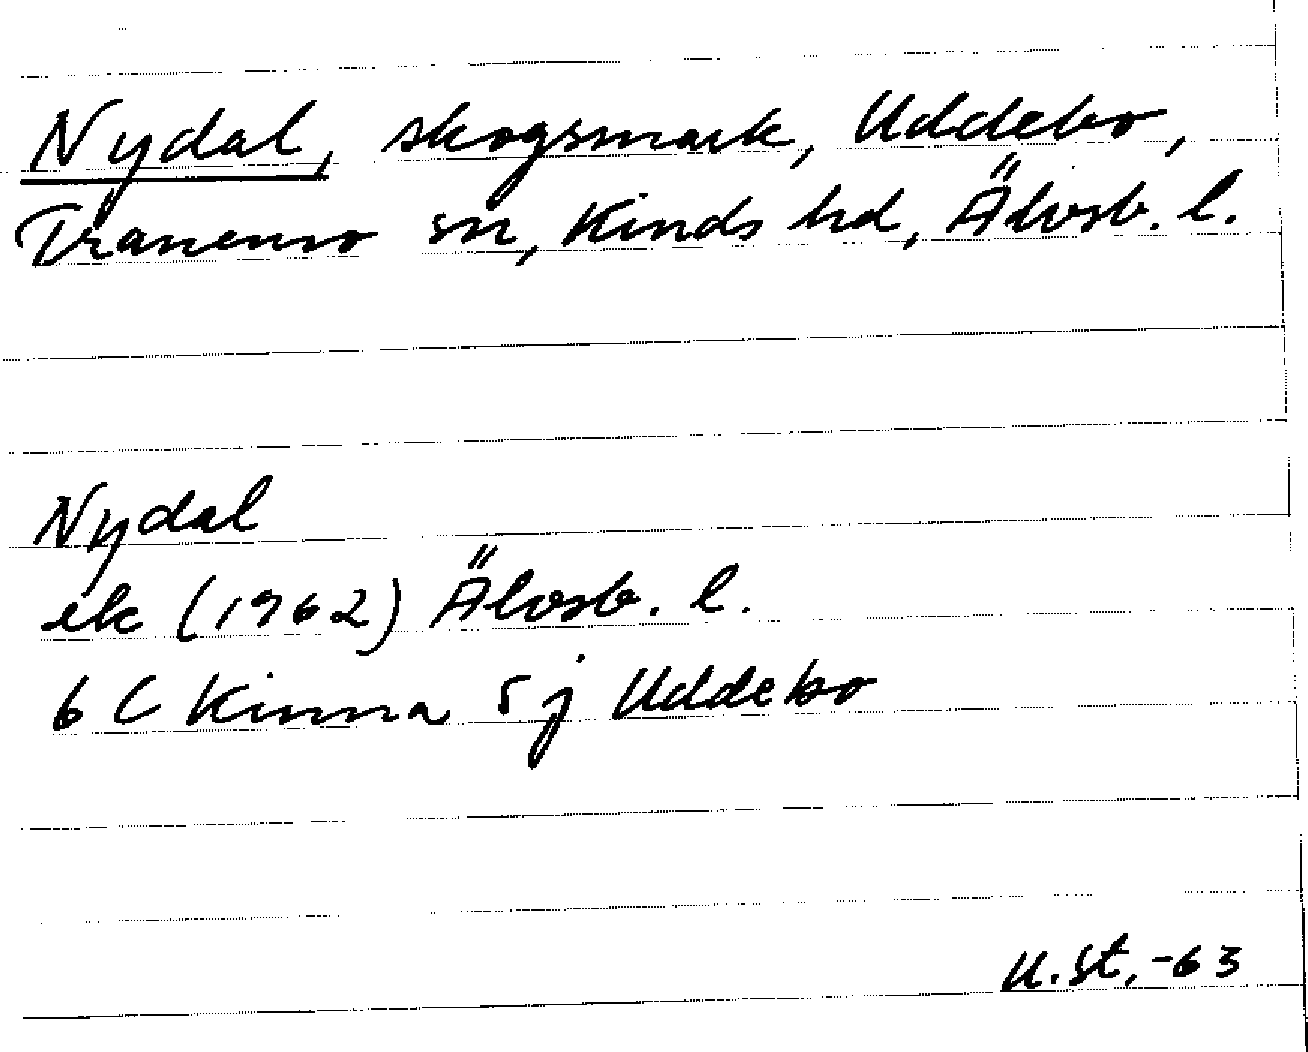 Nydal, skogsmark, Uddebo,
Tranemo sn, Kinds hd, Älvsb. l.
Nydal
ek (1962) Älvsb. l.
6 C Kinna 5 j Uddebo
U.St, -63